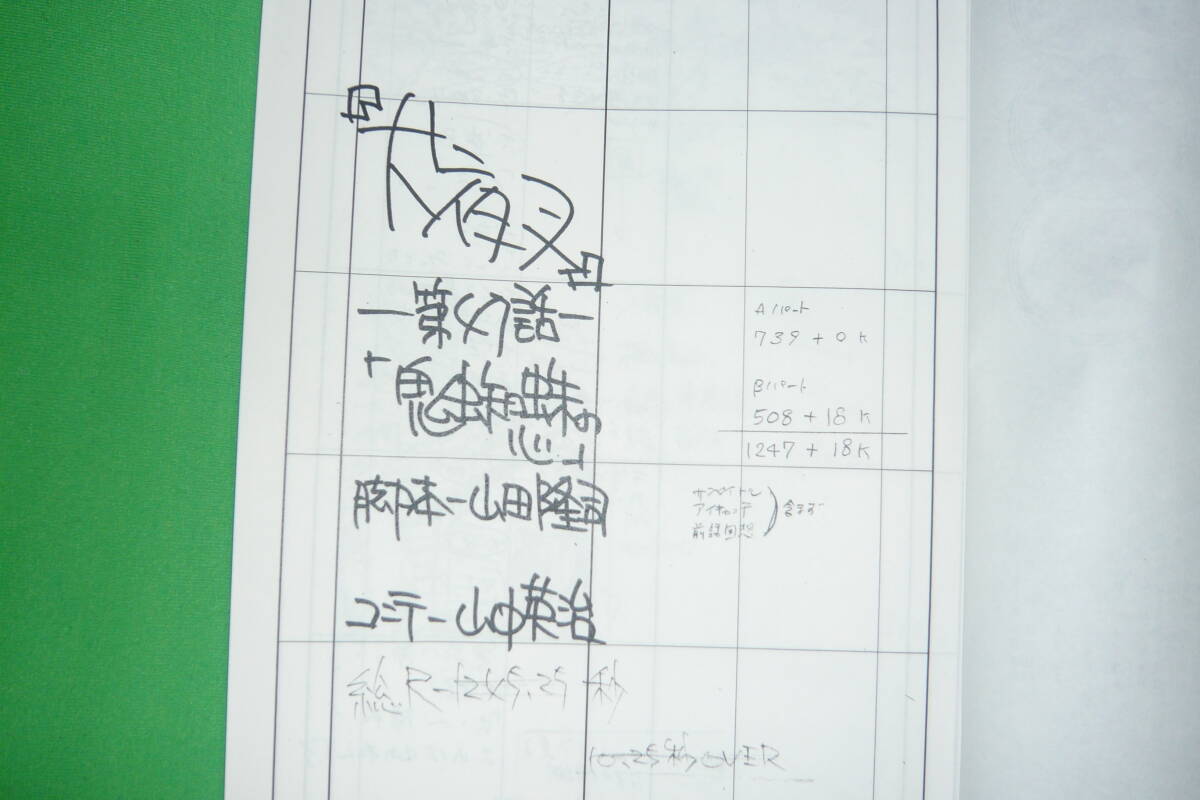 『犬夜叉』
―第47話―
「鬼蜘蛛の心」
脚本―山田隆司
コンテ―山中英治
総尺―1245.25秒
10.25秒OVER
Aパート
739 + 0 K
Bパート
508 + 18 K
1247 + 18K
サブタイトル
アイキャッチ
前話回想
含まず